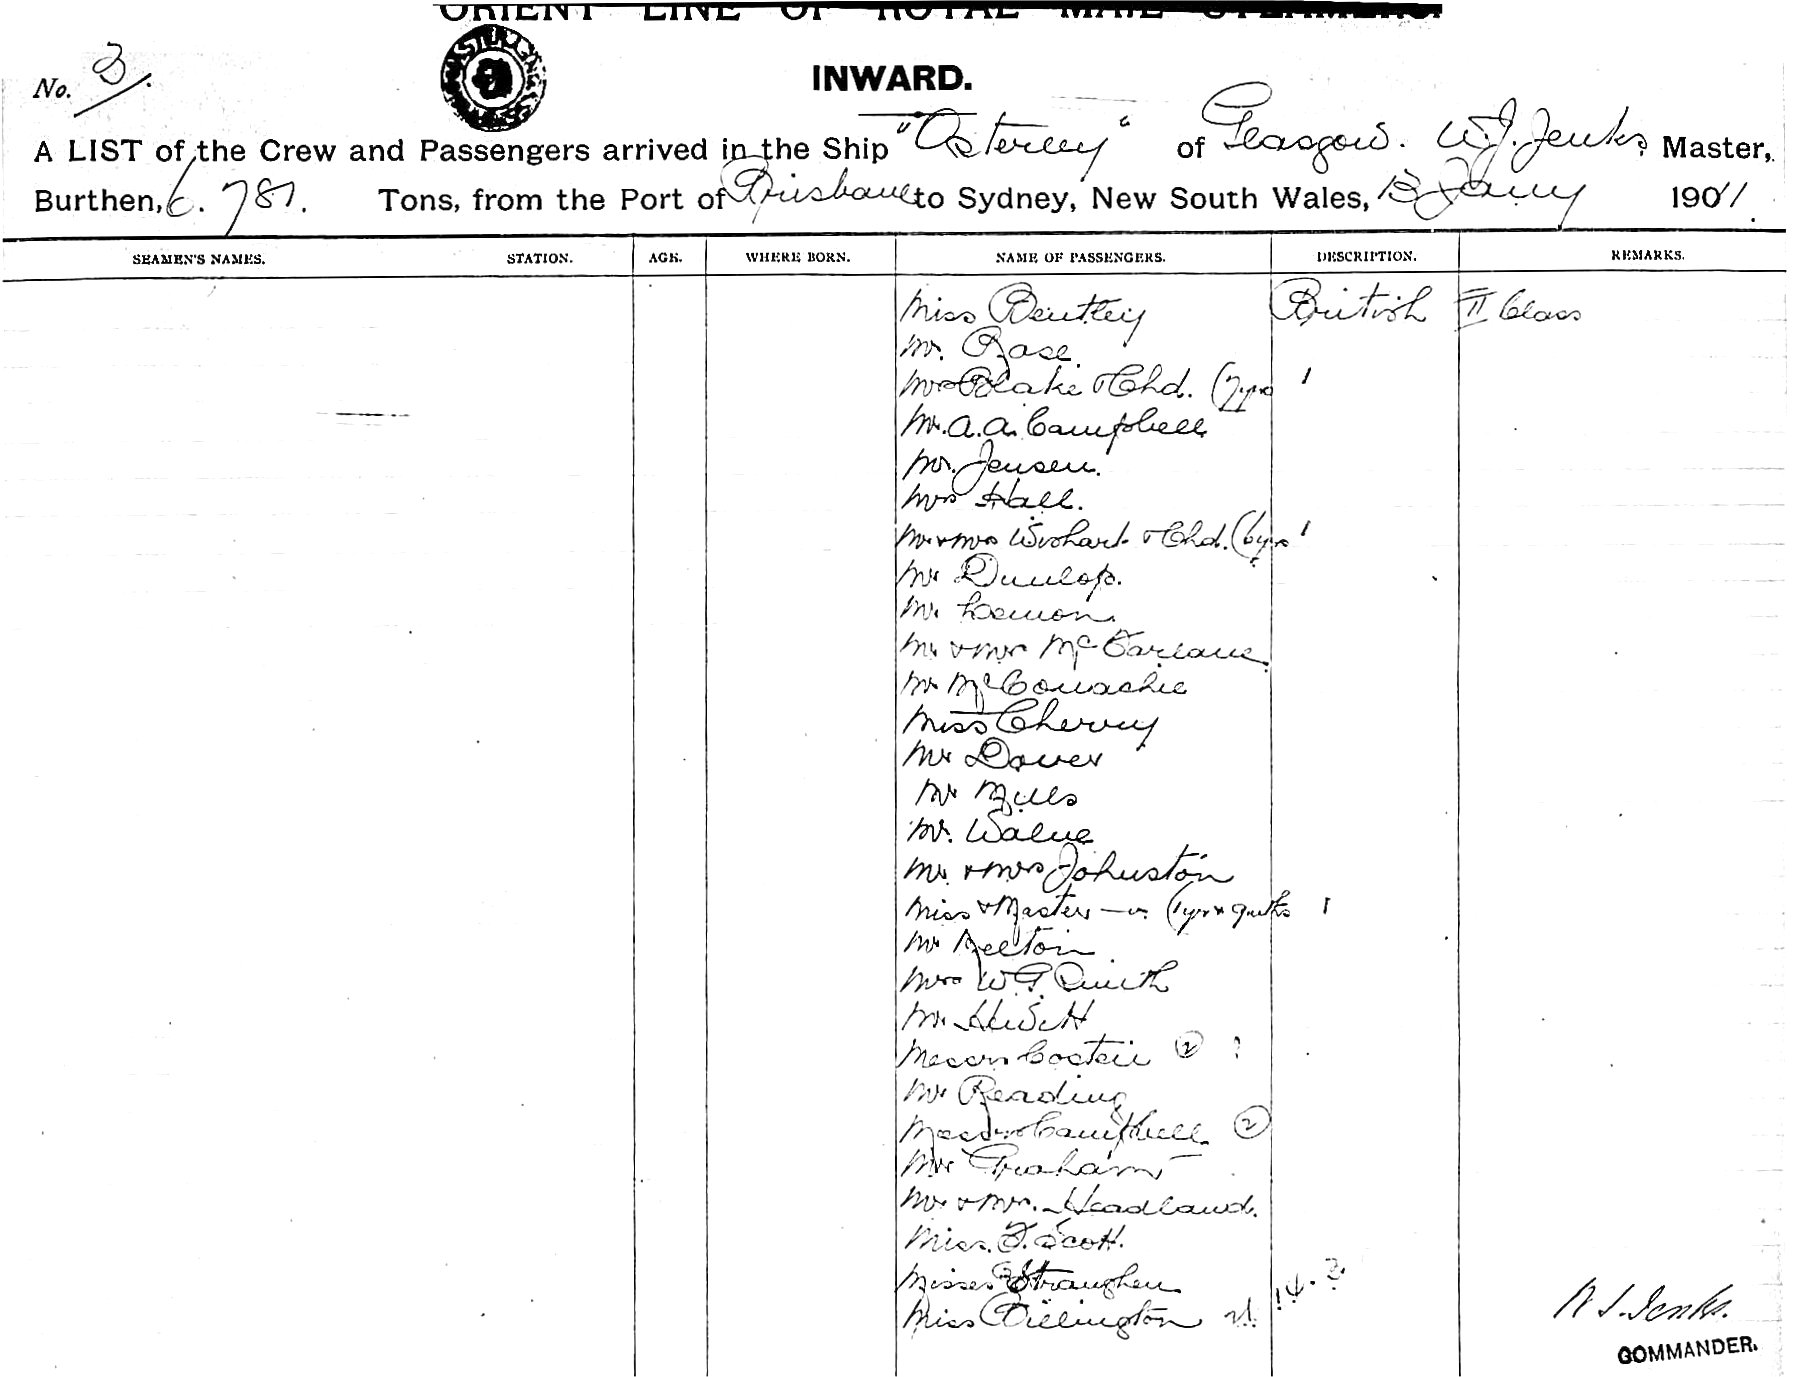 ORIENT LINE OF ROYAL MAIL STEAMERS.
No. 3/.
INWARD.
A LIST of the Crew and Passengers arrived in the Ship "Osterley" of Glasgow. W.J. Jenks, Master,
Burthen, 6.781. Tons, from the Port of Brisbane to Sydney, New South Wales, 13 Jany 1901/.
SEAMEN'S NAMES. STATION. AGE. WHERE BORN. NAME OF PASSENGERS. DESCRIPTION. REMARKS.
Miss Bentley British II Class
Mr. Rase
Mrs Blake & Chd. (7yrs 1
Mr. A.A. Campbell
Mr. Jensen.
Mrs Hall.
Mr & Mrs Wishart & Chd. (6yrs 1
Mr Dunlop.
Mr. Lemon.
Mr & Mrs McFarlane.
Mr McConachie
Miss Cherry
Mr Dover
Mr Mills
Mr. Walne
Mr. & Mrs Johnston
Miss & Master — " (1yr & 9mths 1
Mr Melton
Mrs W.G. Smith
Mr. Hewitt
Messrs Costein 2
Mr Reading
Messrs Campbell 2
Mr Graham
Mr & Mrs. Headland.
Miss. F. Scott.
Misses Straughen
Miss Billington
14. 3
W. J. Jenks.
COMMANDER.